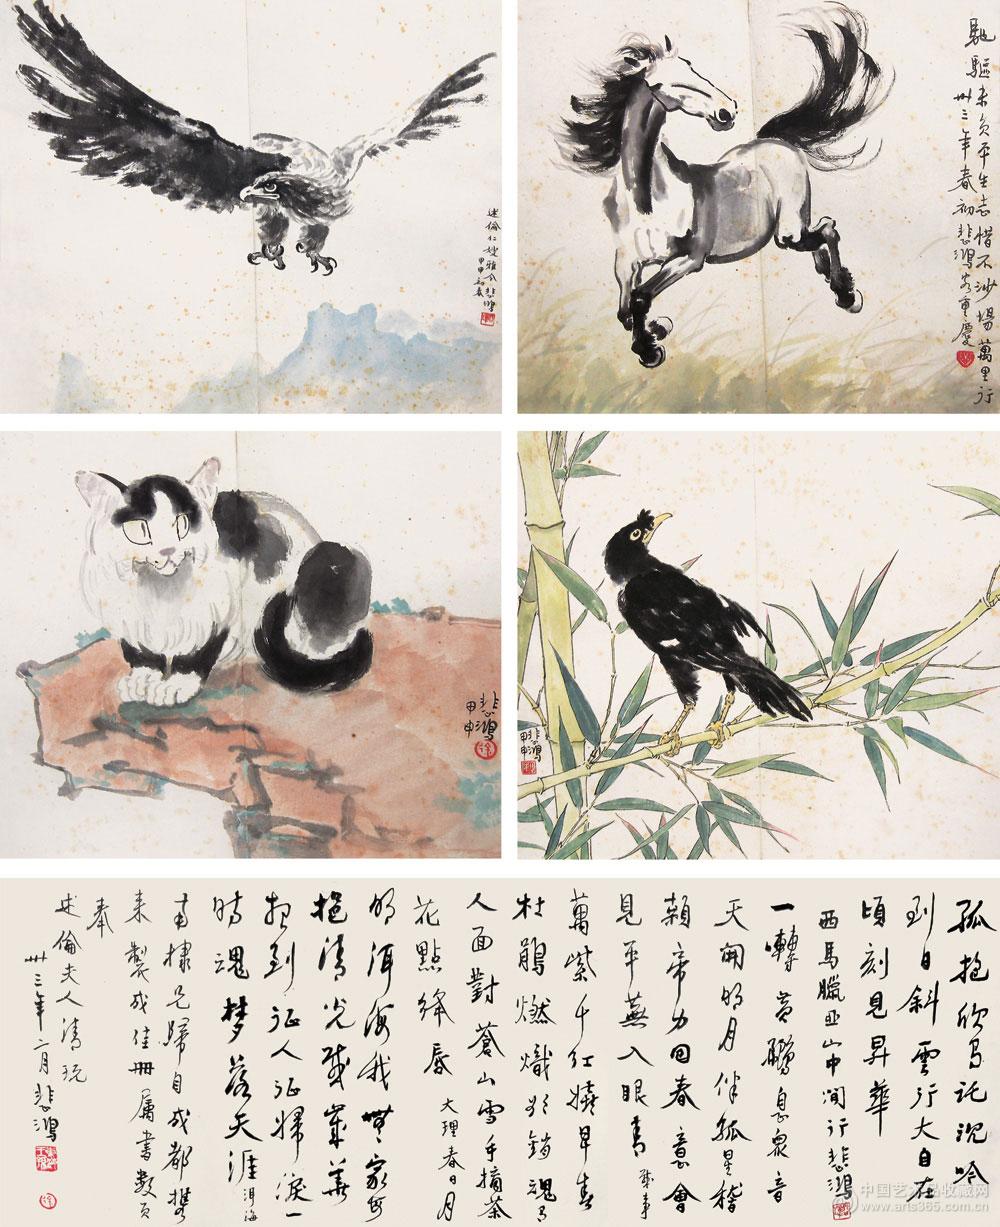 述倫仁嫂雅令悲鴻
甲申初春
馳驅未負平生志惜不沙場萬里行
卅三年春初悲鴻客重慶
悲鴻
甲申
悲鴻
甲申
孤抱欣為託沉吟
到日斜雲行大自在
頃刻見昇華
西馬臘亞山中澗行悲鴻
一囀黃鸝息眾音
天開明月伴孤星稽
顙帝力回春意會
見平蕪入眼青 戰事
萬紫千紅嬈早春
杜鵑燃熾欲銷魂
人面對蒼山雪手摘茶
花點絳唇 大理春日月
明洱海我無家
抱清光感歲華
想到征人征婦淚一
時魂夢落天涯 洱海
南棣兄歸自成都攜
來製成佳冊屬書數頁
奉
述倫夫人清玩
卅三年二月悲鴻
中国艺术品收藏网
www.arts365.com.cn